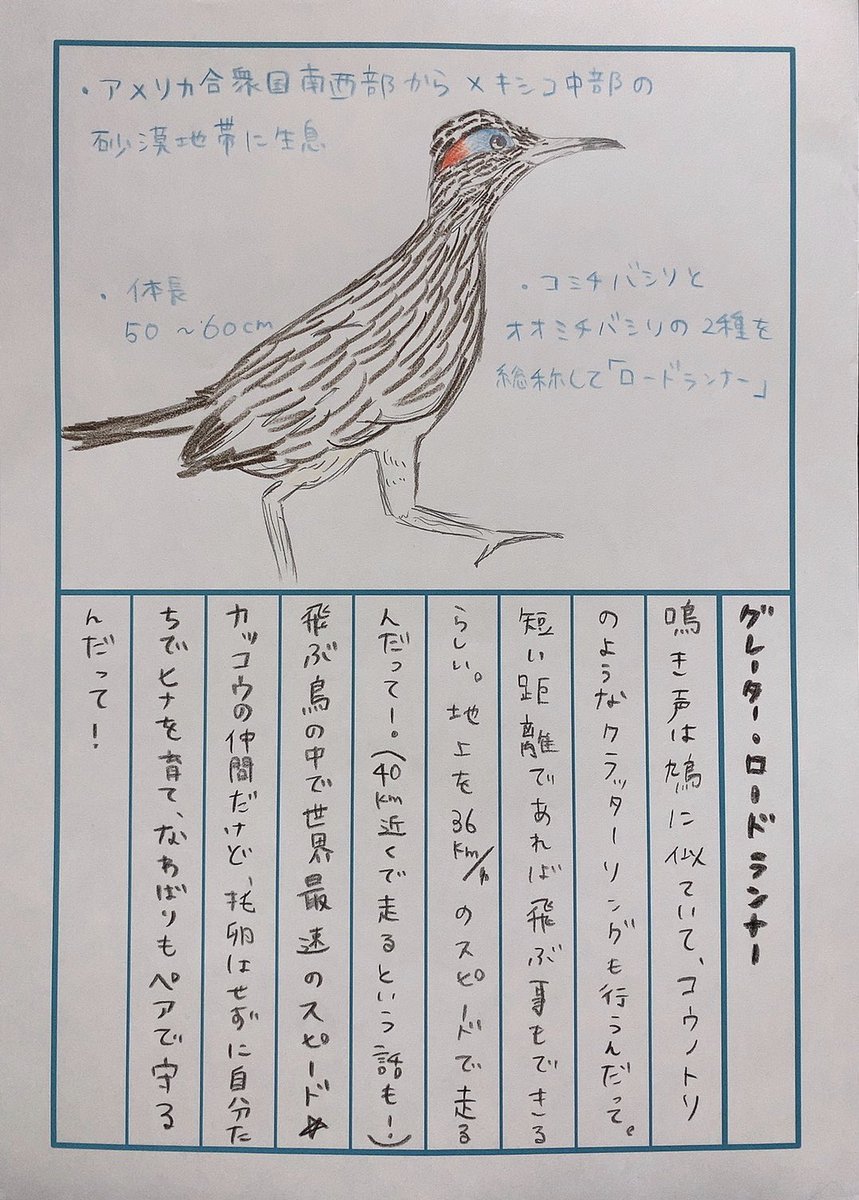 ・アメリカ合衆国南西部からメキシコ中部の
砂漠地帯に生息
・体長
50〜60cm
・コミチバシリと
オオミチバシリの2種を
総称して「ロードランナー」
グレーター・ロードランナー
鳴き声は鳩に似ていて、コウノトリ
のようなクラッターリングも行うんだって。
短い距離であれば飛ぶ事もできる
らしい。地上を36km/hのスピードで走る
んだって!。(40km近くで走るという話も!)
飛ぶ鳥の中で世界最速のスピード☆
カッコウの仲間だけど、托卵はせずに自分た
ちでヒナを育て、なわばりもペアで守る
んだって!